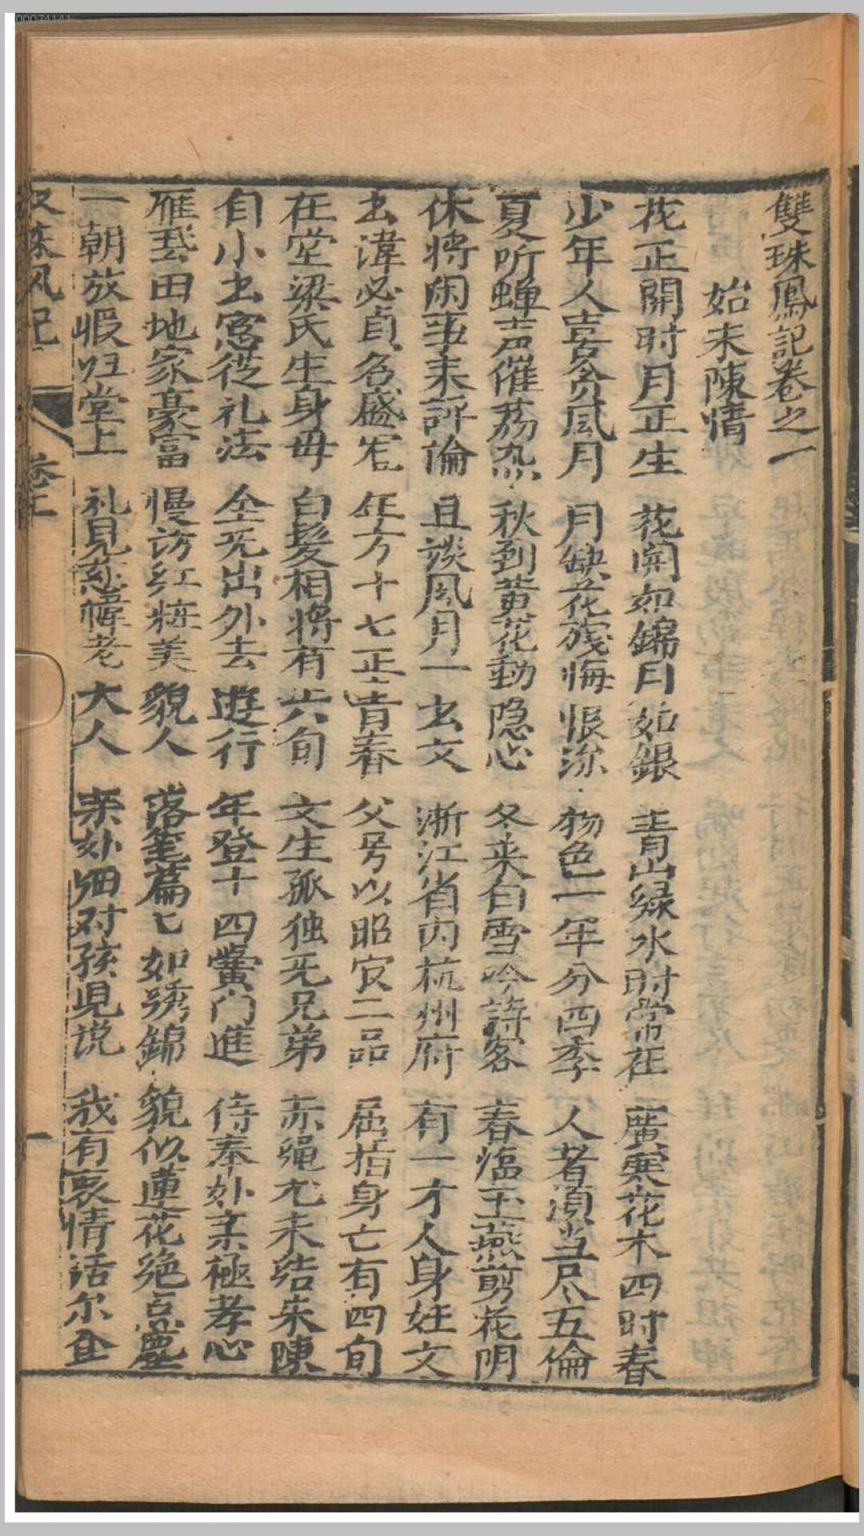 雙珠鳳記卷之一
始末陳情
花正開时月正生 花開如錦月如銀 青山綠水时常在 廣栗花木四时春
少年人喜贪风月 月缺花殘悔恨深 物色一年分四季 人者須当尽五倫
夏听蝉声催荔 秋到黄花動隐心 冬来白雪吟詩客 春临玉燕剪花阴
休将闲事来評論 且談风月一去文 浙江省内杭州府 有一才人身姓文
去諱必貞名盛 年方十七正青春 父号以昭官二品 居指身亡有四旬
在堂梁氏生身母 白髪相将有六旬 文生孤独旡兄弟 赤绳尤未结朱陳
自小去窓從礼法 全旡出外去遊行 年登十四黌门進 侍奉外亲極孝心
雁 田地家豪富 慢访红粧美貌人 落笔篇七如綉錦 貌似蓮花绝点塵
一朝放暇归堂上 礼見慈幃老大人 亲外细对孩児说 我有衷情话尔企
双珠凤记 卷上 一